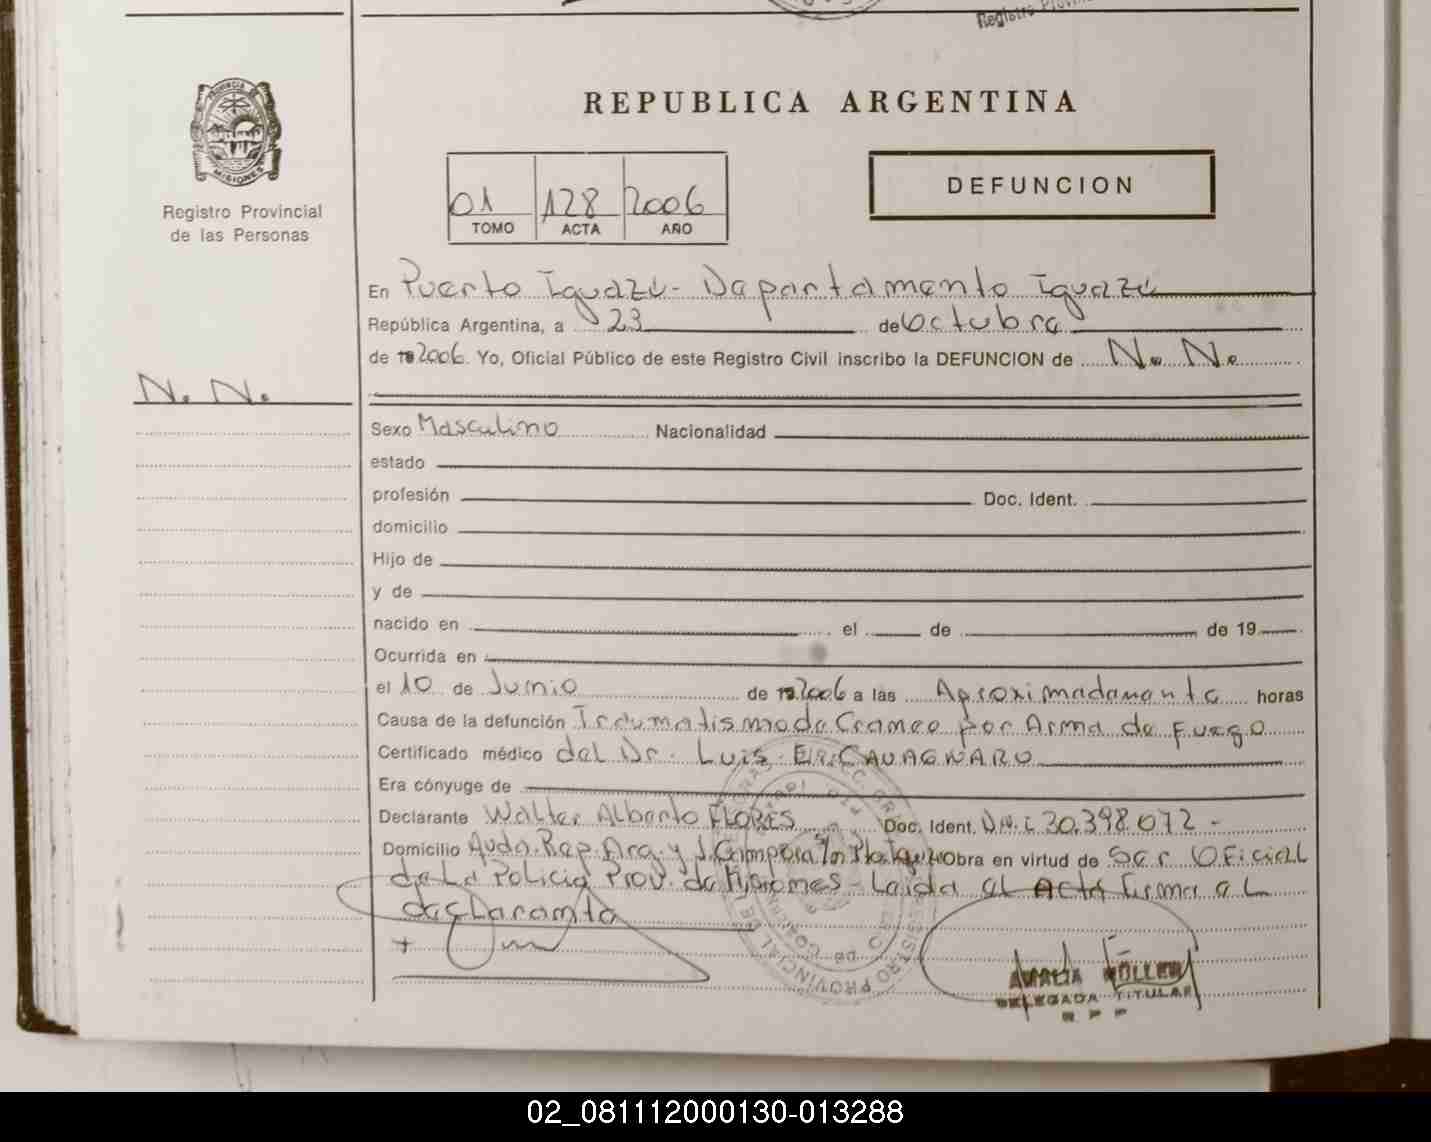 Registro Provin
REPUBLICA ARGENTINA
PROVINCIA DE
MISIONES
Registro Provincial
de las Personas
01 128 2006
TOMO ACTA AÑO
DEFUNCION
En Puerto Iguazú - Departamento Iguazú
República Argentina, a 23 de Octubre
de 2006. Yo, Oficial Público de este Registro Civil inscribo la DEFUNCION de N. N.
N. N.
Sexo Masculino Nacionalidad
estado
profesión Doc. Ident.
domicilio
Hijo de
y de
nacido en el de de 19
Ocurrida en
el 10 de Junio de 2006 a las Aproximadamente horas
Causa de la defunción Traumatismo de Craneo por Arma de Fuego
Certificado médico del Dr. Luis E. CAVAGNARO
Era cónyuge de
Declarante Walter Alberto FLORES Doc. Ident. D.N.I 30.398.072 -
Domicilio Avda. Rep. Arg. y J. S/n Pto. Iguazú Obra en virtud de Ser Oficial
de La Policia Prov. de Misiones - Leida el Acta Firma el
declarante
AMALIA MÜLLER
DELEGADA TITULAR
R P P
02_081112000130-013288